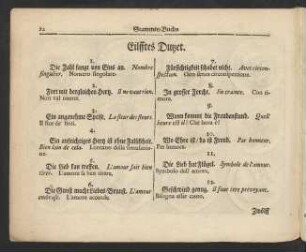 22
Sinnreiche
Eilfftes Dutzet.
1.
Die Zahl fangt von Eins an. Nombre
singulier. Numero singulare.
2.
Fort mit dergleichen Hertz.
Non val nulla.
3.
Ein angenehme Speiß. La fleur des fleurs.
Il fior de' fiori.
4.
Ein auffrichtiges Hertz ist ohne Falschheit.
Rien loin de cela. Lontano della simulatione.
5.
Die Lieb kan treffen. L'amour fait bien
tirer. L'amore fà ben tirare.
6.
Die Gunst macht Liebes-Brunst. L'amour
embrase. L'amore accende.
7.
Fürsichtigkeit schadet nicht. Avec circon-
spection. Con circonspettione.
8.
In grosser Forcht. En crainte. Con ti-
more.
9.
Wann kommt die Freudenstund. Quel
heure est il? Che hora è?
10.
Wo Ehre ist / da ist Freud. Par honneur.
Per honore.
11.
Die Lieb hat Flügel. Symbole de l'amour.
Simbolo dell' amore.
12.
Geschwind genug. Il faut être prevoyant.
Bisogna esser cauto.
Zwölff